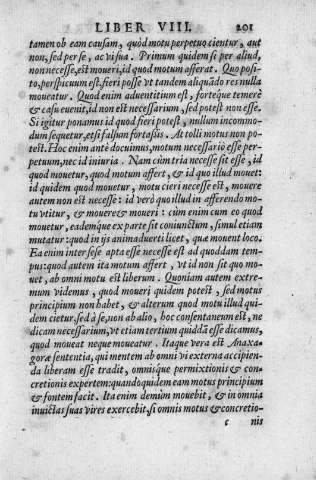 LIBER VIII. 201
tamen ob eam causam, quòd motu perpetuo cientur, aut
non, sed per se, ac vi sua. Primum quidem si per aliud,
non necesse, est moueri, id quod motum afferat. Quo posi-
to, perspicuum est, fieri posse vt tandem aliquãdo res nulla
moueatur. Quod enim aduentitium est, forteque temerè
& casu euenit, id non est necessarium, sed potest non esse.
Si igitur ponamus id quod fieri potest, nullum incommo-
dum sequetur, etsi falsum fortassis. At tolli motus non po-
test. Hoc enim antè docuimus, motum necessariò esse per-
petuum, nec id iniuria. Nam cùm tria necesse sit esse, id
quod mouetur, quod motum affert, & id quo illud mouet:
id quidem quod mouetur, motu cieri necesse est, mouere
autem non est necesse: id verò quo illud in afferendo mo-
tu vtitur, & mouere & moueri: cùm enim cum eo quod
mouetur, eademque ex parte sit coniunctum, simul etiam
mutatur: quod in ijs animaduerti licet, quæ mouent loco.
Ea enim inter sese apta esse necesse est ad quoddam tem-
pus: quod autem ita motum affert, vt id non sit quo mo-
uet, ab omni motu est liberum. Quoniam autem extre-
mum videmus, quod moueri quidem potest, sed motus
principium non habet, & alterum quod motu illud qui-
dem cietur, sed à se, non ab alio, hoc consentaneum est, ne
dicam necessarium, vt etiam tertium quiddã esse dicamus,
quod moueat neque moueatur. Itaque vera est Anaxa-
goræ sententia, qui mentem ab omni vi externa accipien-
da liberam esse tradit, omnisque permixtionis & con-
cretionis expertem: quandoquidem eam motus principium
& fontem facit. Ita enim demùm mouebit, & in omnia
inuictas suas vires exercebit, si omnis motus & concretio-
c nis